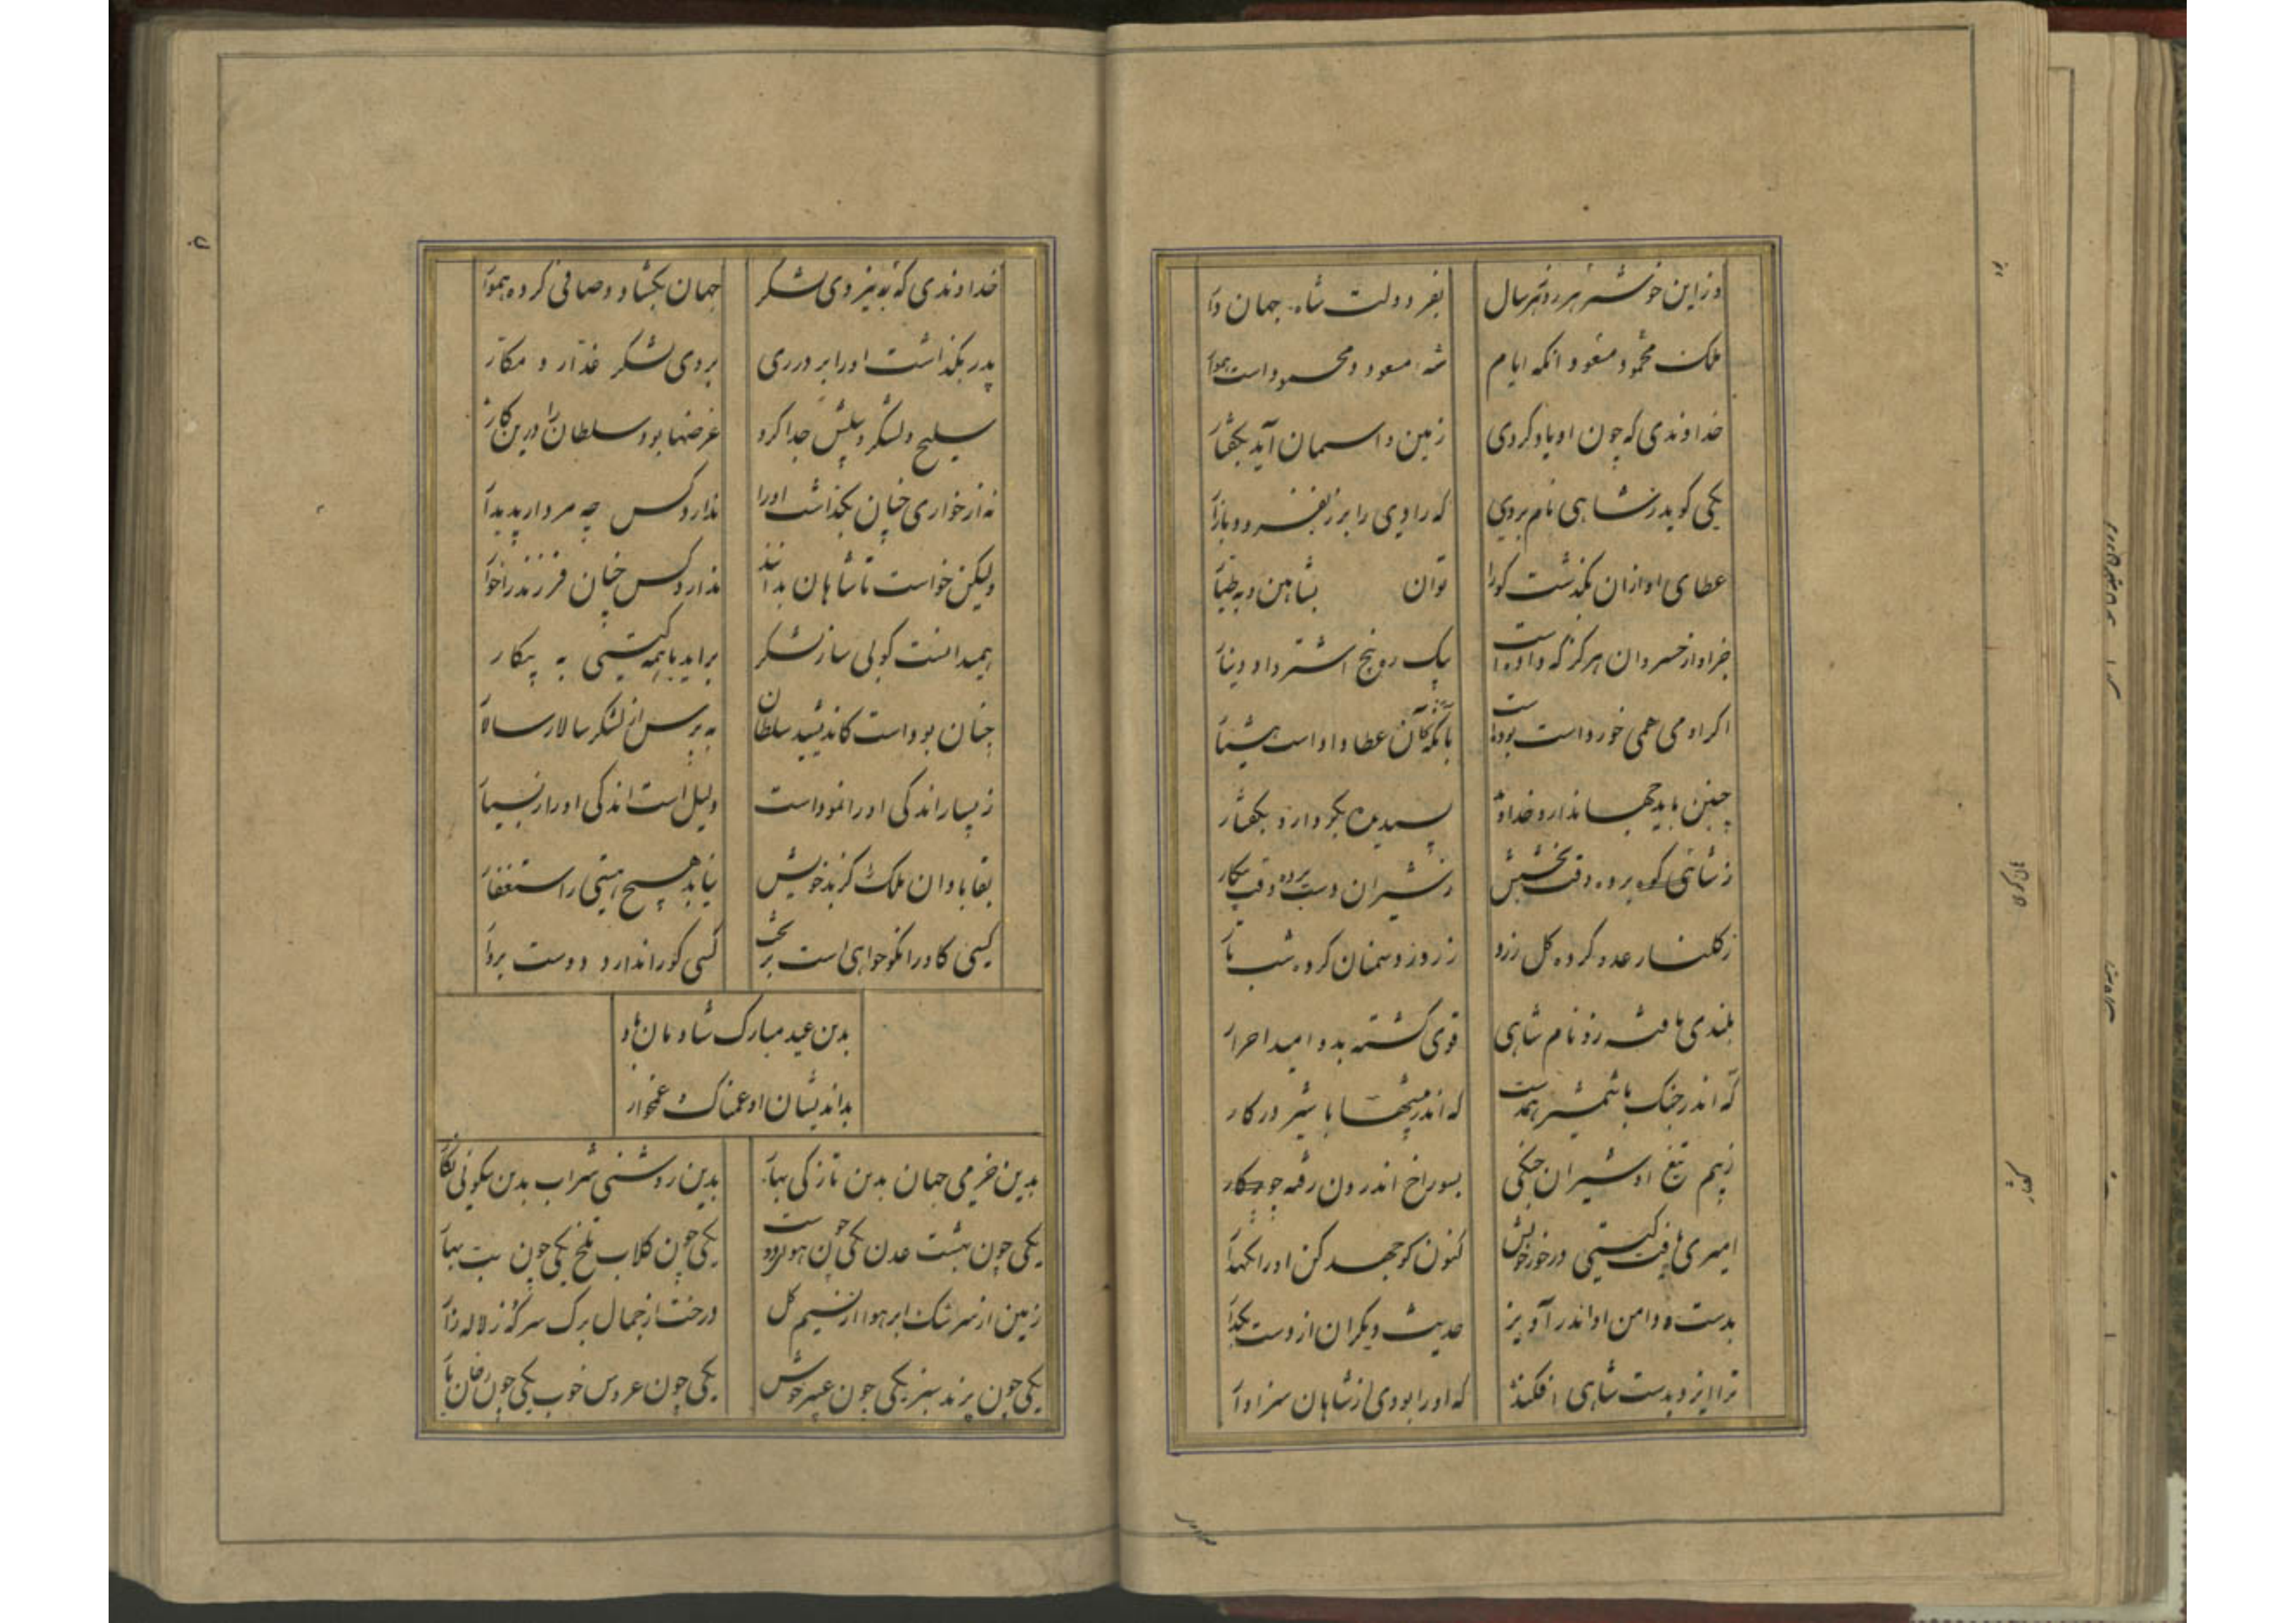 وزاین خوشتر هر روز هر سال بفر دولت شاه جهان دا
ملک محمود مسعود انکه ایام شه مسعود و محمود است هموا
خداوندی که چون او یاد کردی زمین و اسمان آید بگفتا
یکی کو بدر شاهی نام بردی که رادی را برد
عطای او ازان بگذشت کورا توان بشاهین و به طیا
جز او از خسروان هرکز که داده است پیک رو پنج اشتر وار دینا
اکر او می همی خورد است بوده است بانکه کان عطا داد است هشیا
چنین باید جهاندار و خداوند پسندیده بکردار و بکفتار
ز شاهی کوه برده وقت بخشش ز شیران دست برده وقت پیکار
ز کلنار عدو کرده کل زرد ز روز دشمنان کرده شب تا
بلندی یافته زو نام شاهی قوی کشته بدو امید احرار
که اندر جنک با شمشیر همدست که اندر بیشها با شیر در کار
ز بیم تیغ او شیران جنکی بسوراخ اندرون رفته چو
امیری یافت کیتی درخور خویش کنون کو جهد کن او را نکهدا
بدست و دامن او اندر آویز حدیث دیکران از دست بکذا
ترا ایزد بدست شاهی افکند که او را بودی از شاهان سزاوا
خداوندی که به نیروی لشکر جهان بکشاد و صافی کرد هموا
پدر بکذاشت او را بر در ری بروی لشکر غدار و مکار
سلیح و لشکر و پیلش جدا کرد غرضها بود سلطان را درین کار
نه از خواری چنان بکذاشت او را ندارد کس چه مروارید
ولیکن خواست تا شاهان بدانند ندارد کس چنان فرزند را خوا
همیدانست کو بی ساز لشکر براید با همه کیتی به پیکار
چنان بود است کاندیشید سلطان به پرس از لشکر سالار سالا
ز بسیار اندکی او را نمود است دلیل است اندکی او را ز بسیا
بقا بادان ملک را کز بد خویش نیابد هیچ هستی را استغفا
کسی کاو را نکو خواهی است بر تخت کسی کو را ندارد دوست بردا
بدین عید مبارک شادمان باد
بداندیشان او غمناک و غمخوار
بدین خرمی جهان بدین تازکی بها بدین روشنی شراب بدین نیکوئی نکا
یکی چون بهشت عدن یکی چون هوای دوست یکی چون کلاب تلخ یکی چون بت بها
زمین از سرشک ابر هوا از نسیم کل درخت از جمال برک سر که ز لاله زا
یکی چون پرند سبز یکی چون عبیر خوش یکی چون عروس خوب یکی چون رخان یا